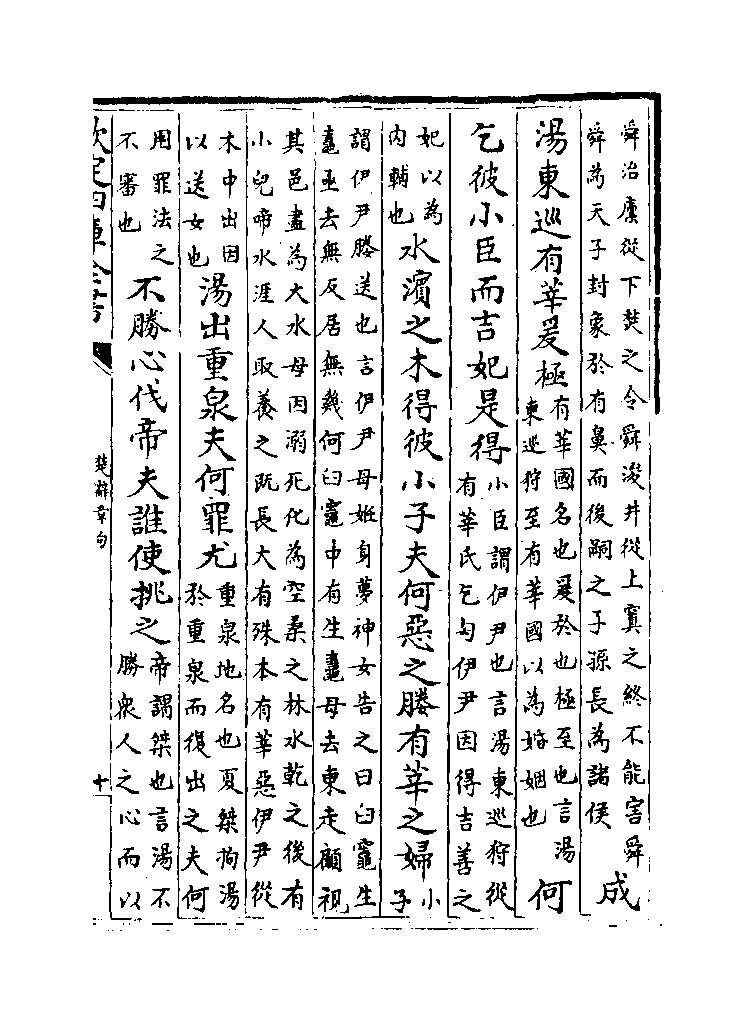 舜治廪從下焚之令舜浚井從上寘之終不能害舜
舜為天子封象於有鼻而後嗣之子孫長為諸侯
成
湯東巡有莘爰極
有莘國名也爰於也極至也言湯
東巡狩至有莘國以為婚姻也
何
乞彼小臣而吉妃是得
小臣謂伊尹也言湯東巡狩從
有莘氏乞匄伊尹因得吉善之
妃以為
内輔也
水濵之木得彼小子夫何惡之媵有莘之婦
小
子
謂伊尹媵送也言伊尹母姙身夢神女告之曰臼竈生
鼃亟去無反居無幾何臼竈中有生鼃母去東走顧視
其邑盡為大水母因溺死化為空桑之林水乾之後有
小兒啼水涯人取養之既長大有殊本有莘惡伊尹從
木中出因
以送女也
湯出重泉夫何罪尤
重泉地名也夏桀拘湯
於重泉而復出之夫何
用罪法之
不審也
不勝心伐帝夫誰使挑之
帝謂桀也言湯不
勝衆人之心而以
欽定四庫全書
楚辭章句
十